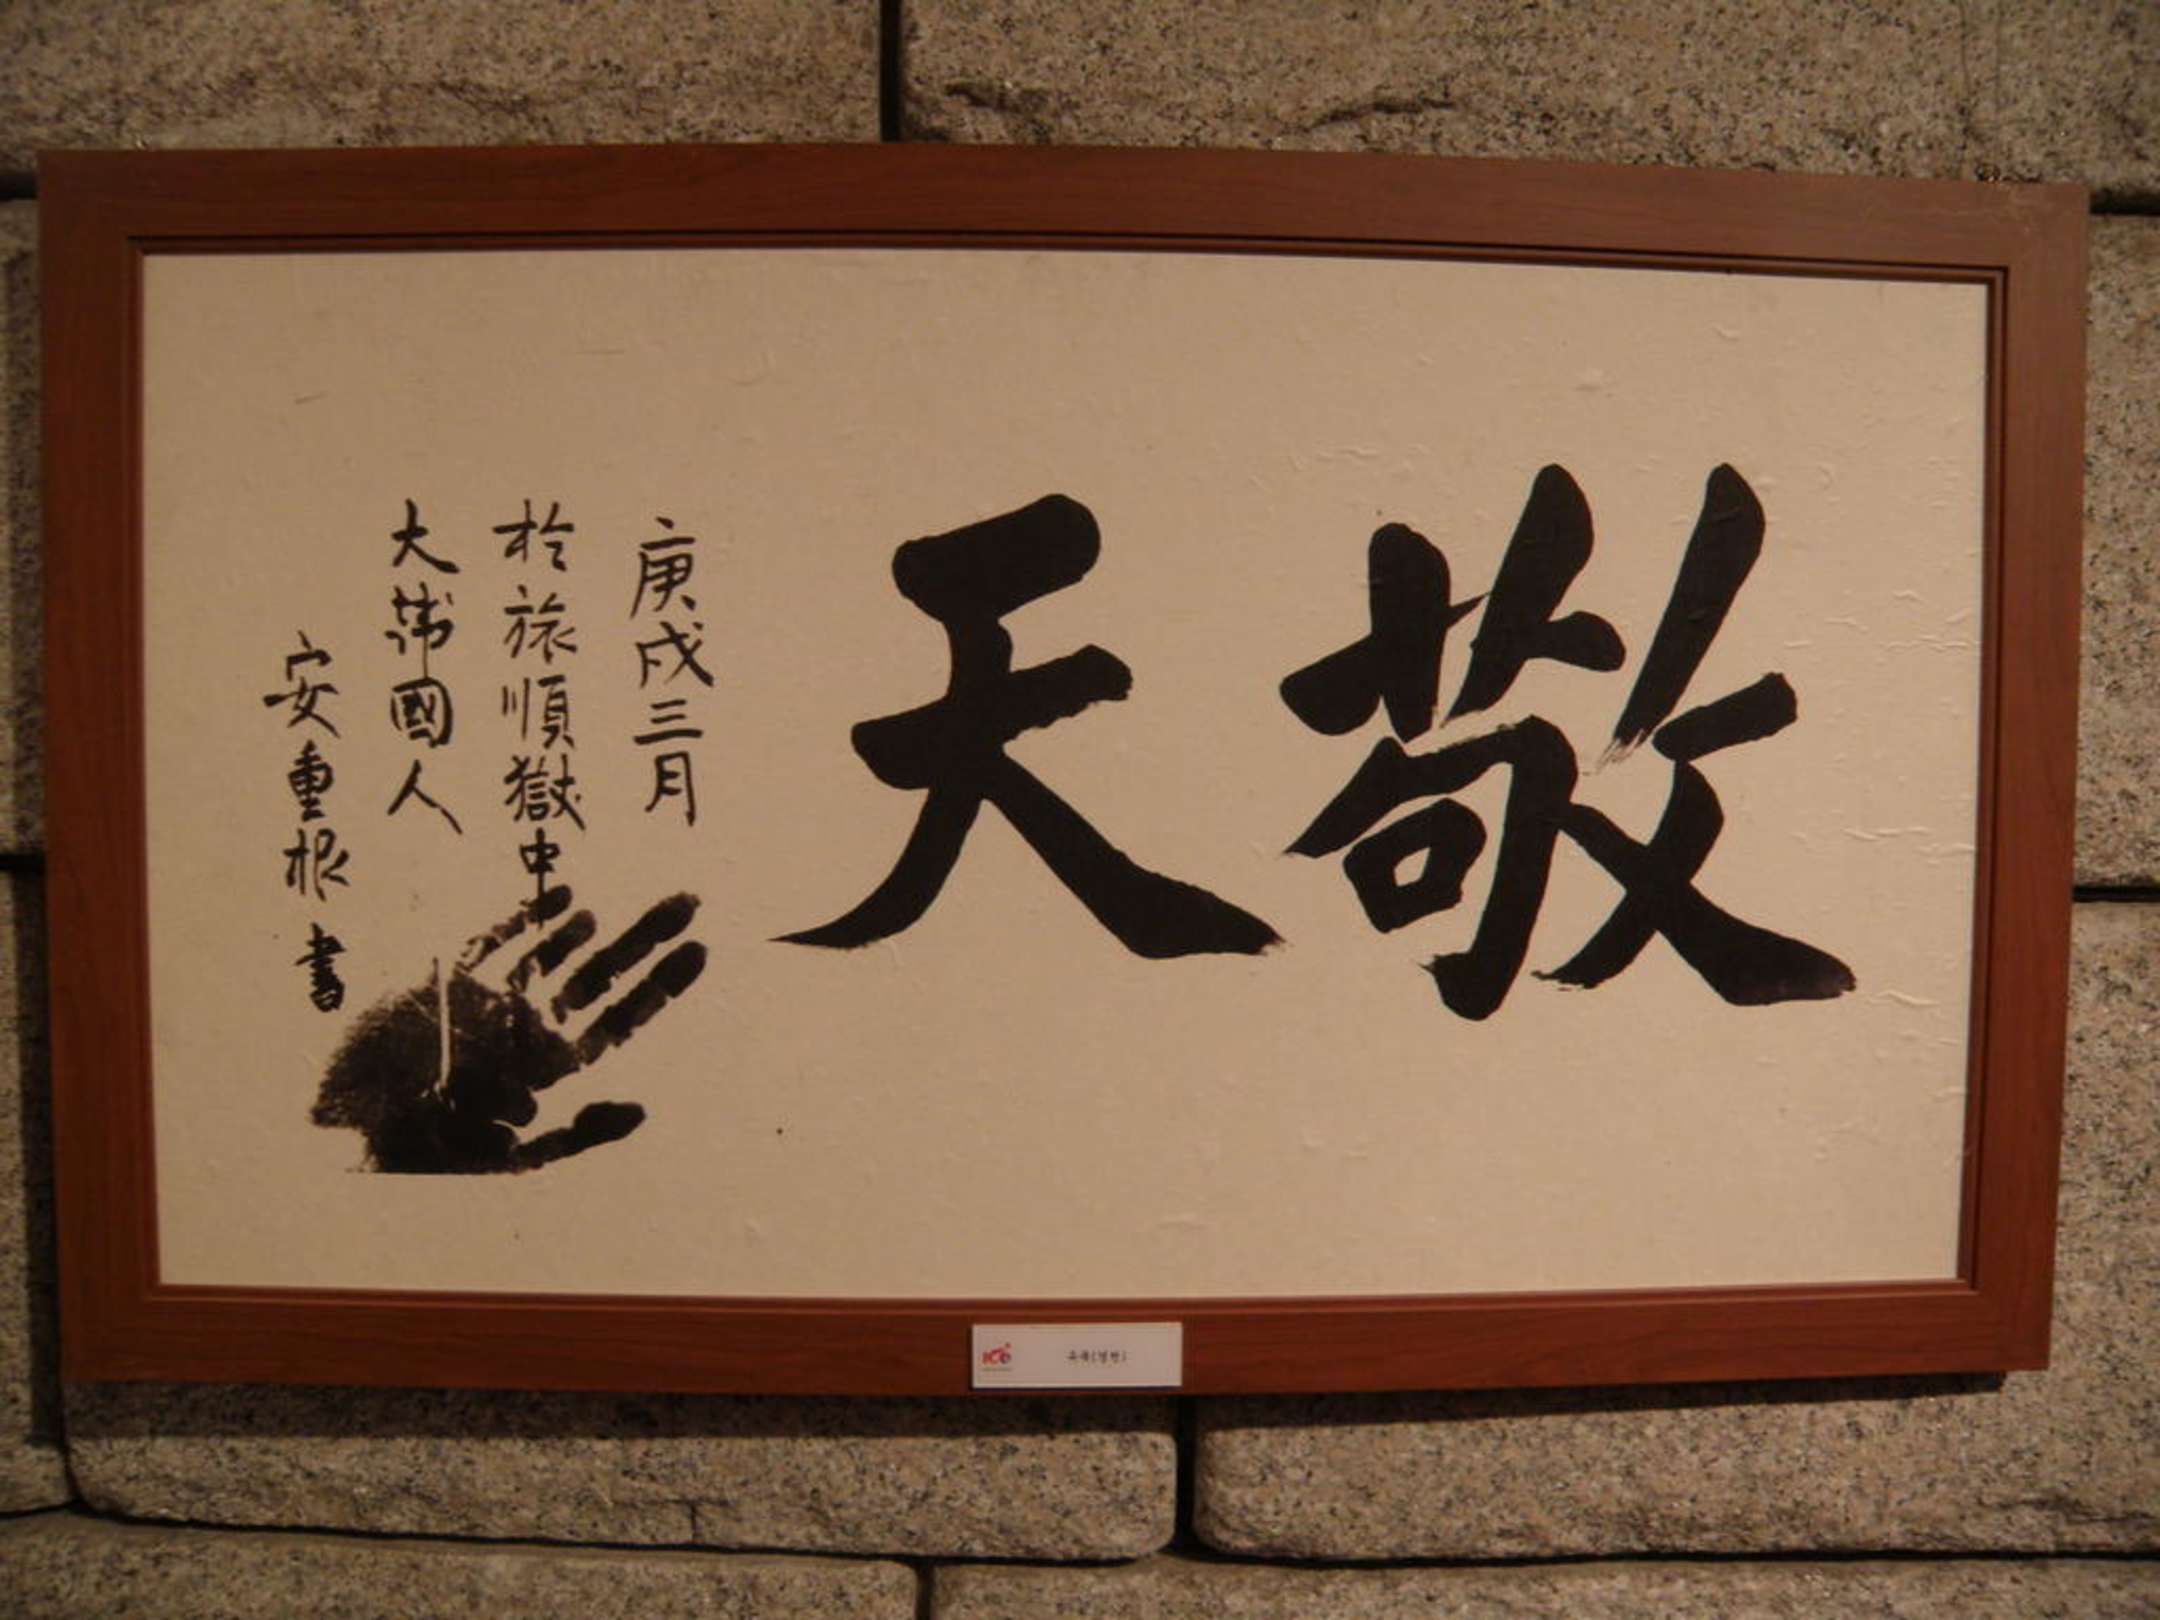 敬天
庚戌三月
於旅順獄中
大韓國人
安重根 書
유묵(경천)